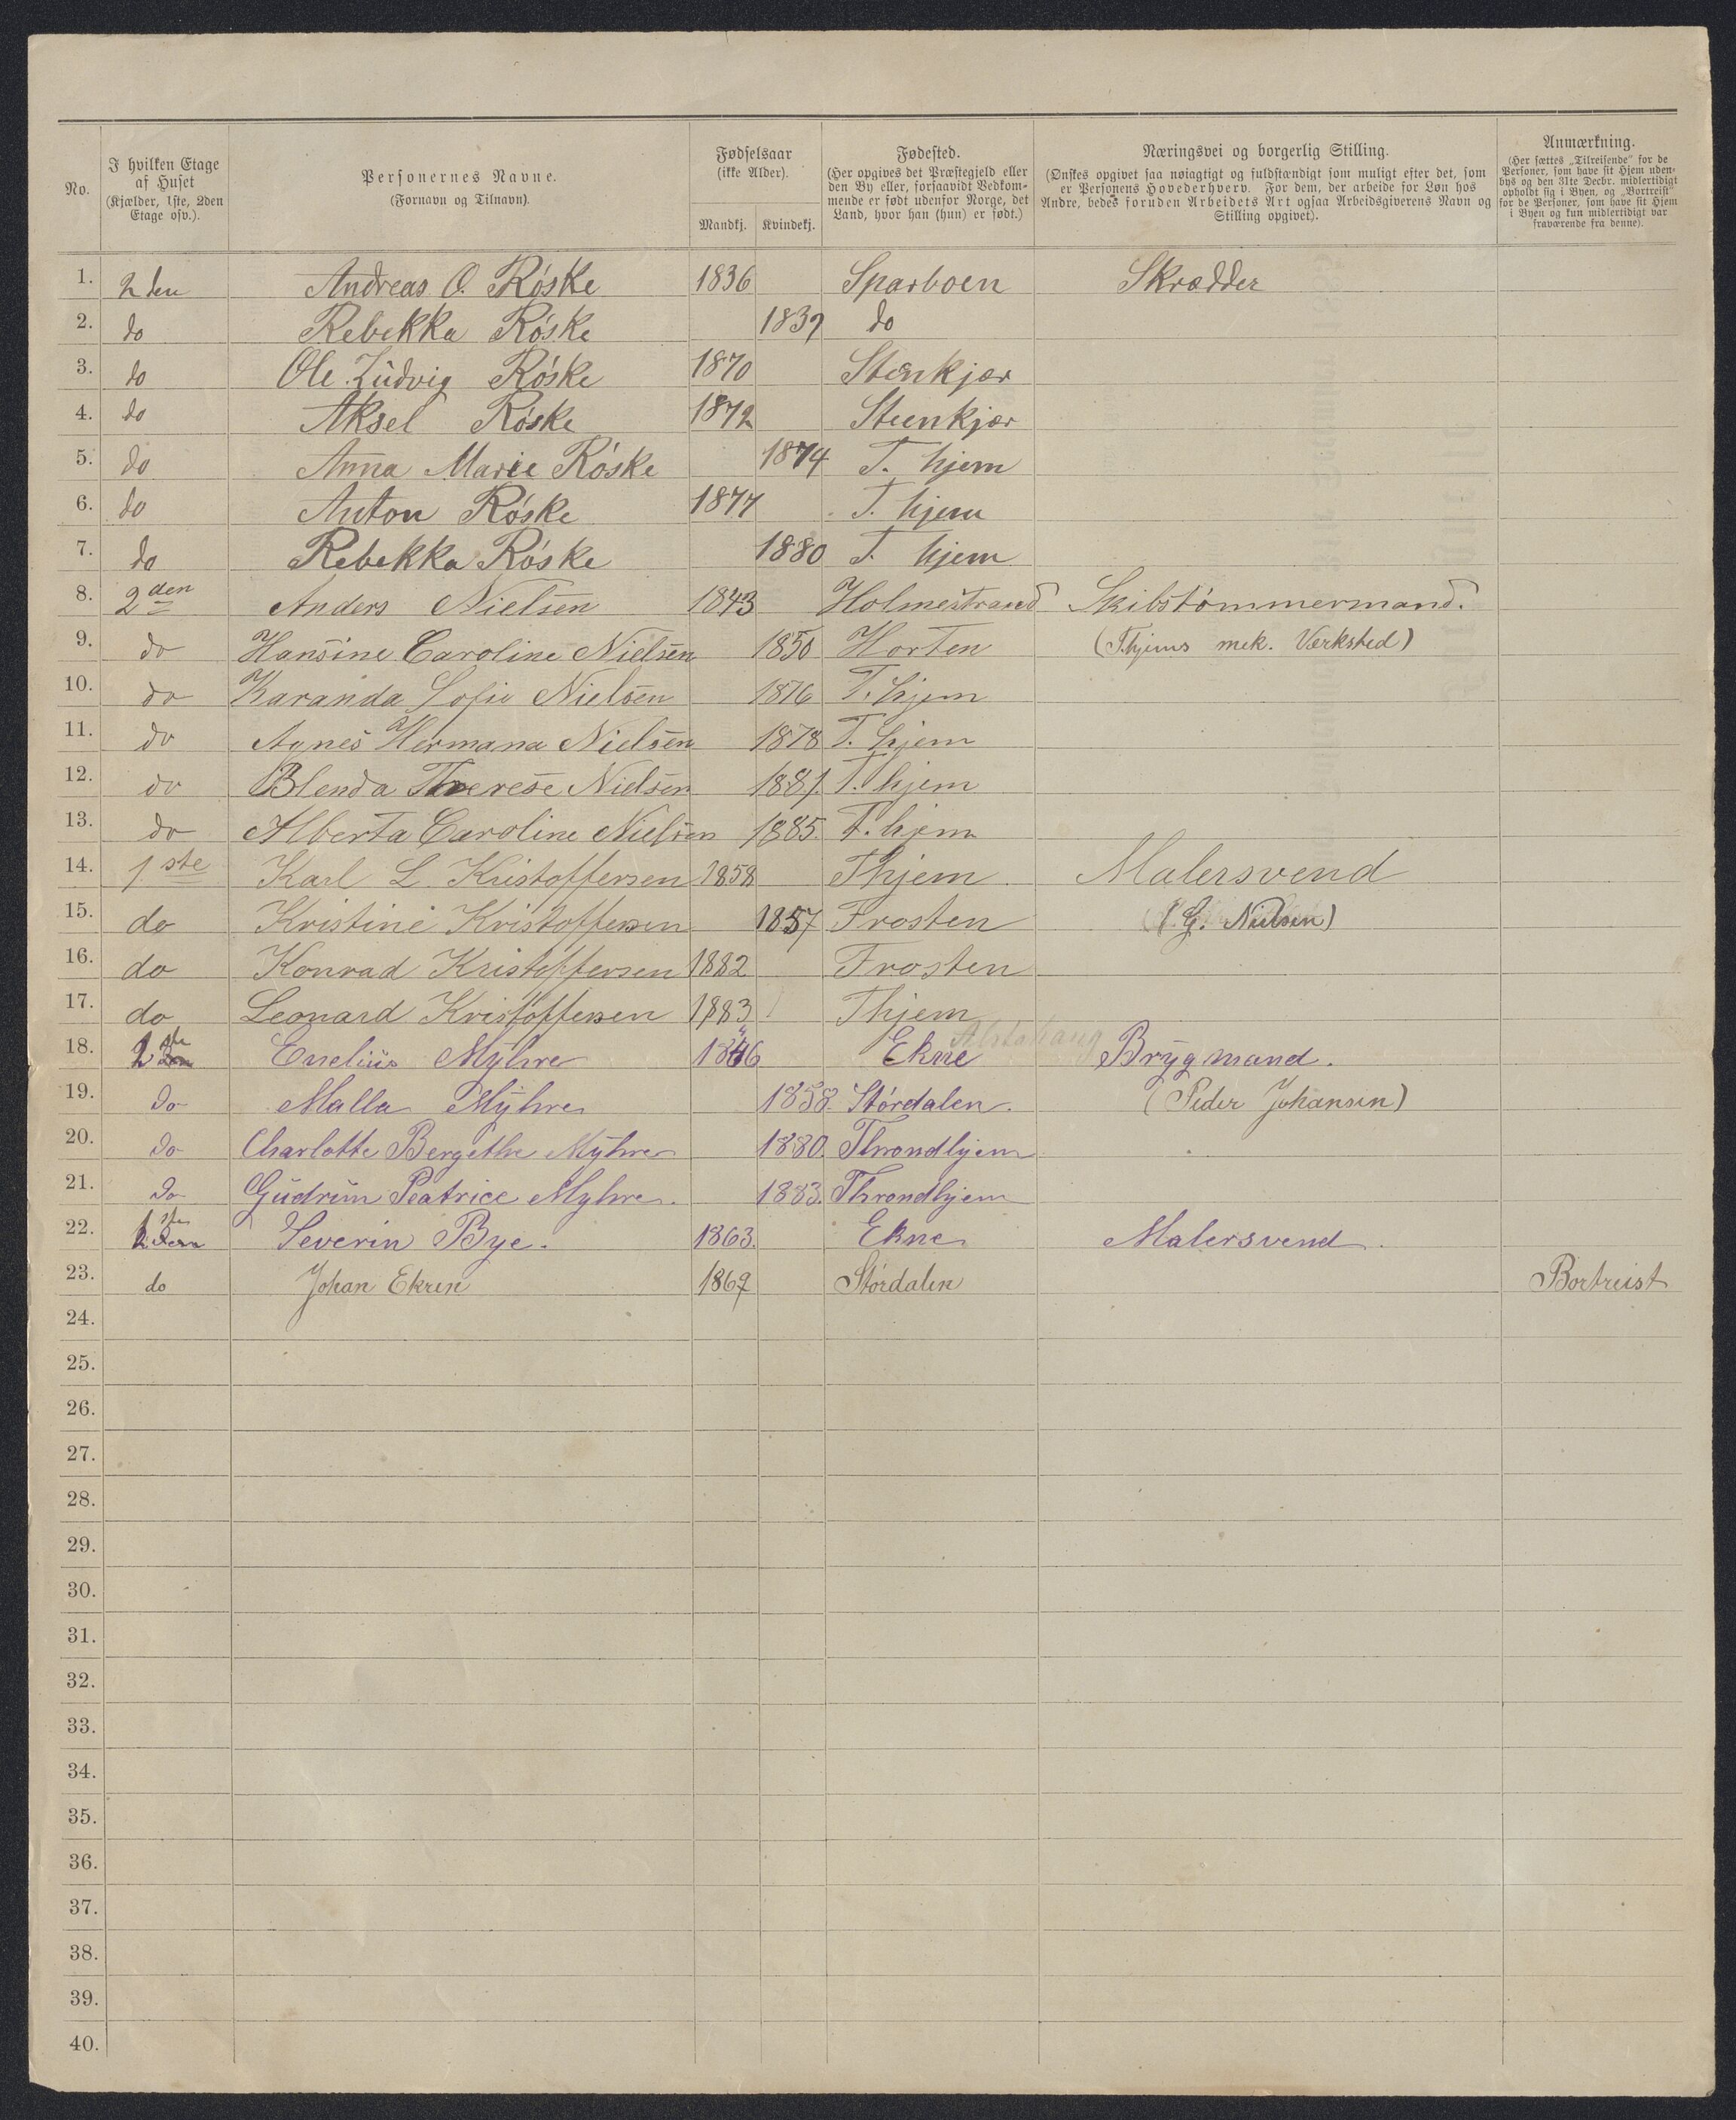 No.
I hvilken Etage af Huset (Kjælder, 1ste, 2den Etage osv.).
Personernes Navne. (Fornavn og Tilnavn).
Fødselsaar (ikke Alder). Mandkj. Kvindekj.
Fødested. (Her opgives det Præstegjeld eller den By eller, forsaavidt Vedkommende er født udenfor Norge, det Land, hvor han (hun) er født.)
Næringsvei og borgerlig Stilling. (Ønskes opgivet saa nøiagtigt og fuldstændigt som muligt efter det, som er Personens Hovederhverv. For dem, der arbeide for Løn hos Andre, bedes foruden Arbeidets Art ogsaa Arbeidsgiverens Navn og Stilling opgivet).
Anmærkning. (Her sættes „Tilreisende" for de Personer, som have sit Hjem udenbys og den 31te Decbr. midlertidigt opholdt sig i Byen, og „Bortreist" for de Personer, som have sit Hjem i Byen og kun midlertidigt var fraværende fra denne).
1. 2den Andreas O. Röske 1836 Sparboen Skrædder
2. do Rebekka Röske 1839 do
3. do Ole Ludvig Röske 1870 Stenkjær
4. do Aksel Röske 1872 Steenkjær
5. do Anna Marie Röske 1874 T. hjem
6. do Anton Röske 1877 T. hjem
7. do Rebekka Röske 1880 T. hjem
8. 2den Anders Nielsen 1843 Holmestrand Skibstömmermand.
9. do Hansine Caroline Nielsen 1850 Horten (Thjems mek. Værksted)
10. do Karanda Sofie Nielsen 1876 T. hjem
11. do Agnes Hermana Nielsen 1878 T. hjem
12. do Blenda Therese Nielsen 1881. T. hjem
13. do Alberta Caroline Nielsen 1885. T. hjem
14. 1ste Karl L. Kristoffersen 1858 Thjem Malersvend
15. do Kristine Kristoffersen 1857 Frosten G. Nielsen)
16. do Konrad Kristoffersen 1882 Frosten
17. do Leonard Kristoffersen 1883 Thjem
18. Myhre 1846 Ekne Alstahaug Brygmand.
19. do Malla Myhre 1858. Stördalen. (Peder Johansen)
20. do Charlotte Bergethe Myhre 1880. Throndhjem
21. do Gudrun Peatrice Myhre. 1883. Throndhjem
22. 1ste Severin Bye. 1863. Ekne Malersvend.
23. do Johan Ekren 1869 Stördalen Bortreist
24.
25.
26.
27.
28.
29.
30.
31.
32.
33.
34.
35.
36.
37.
38.
39.
40.